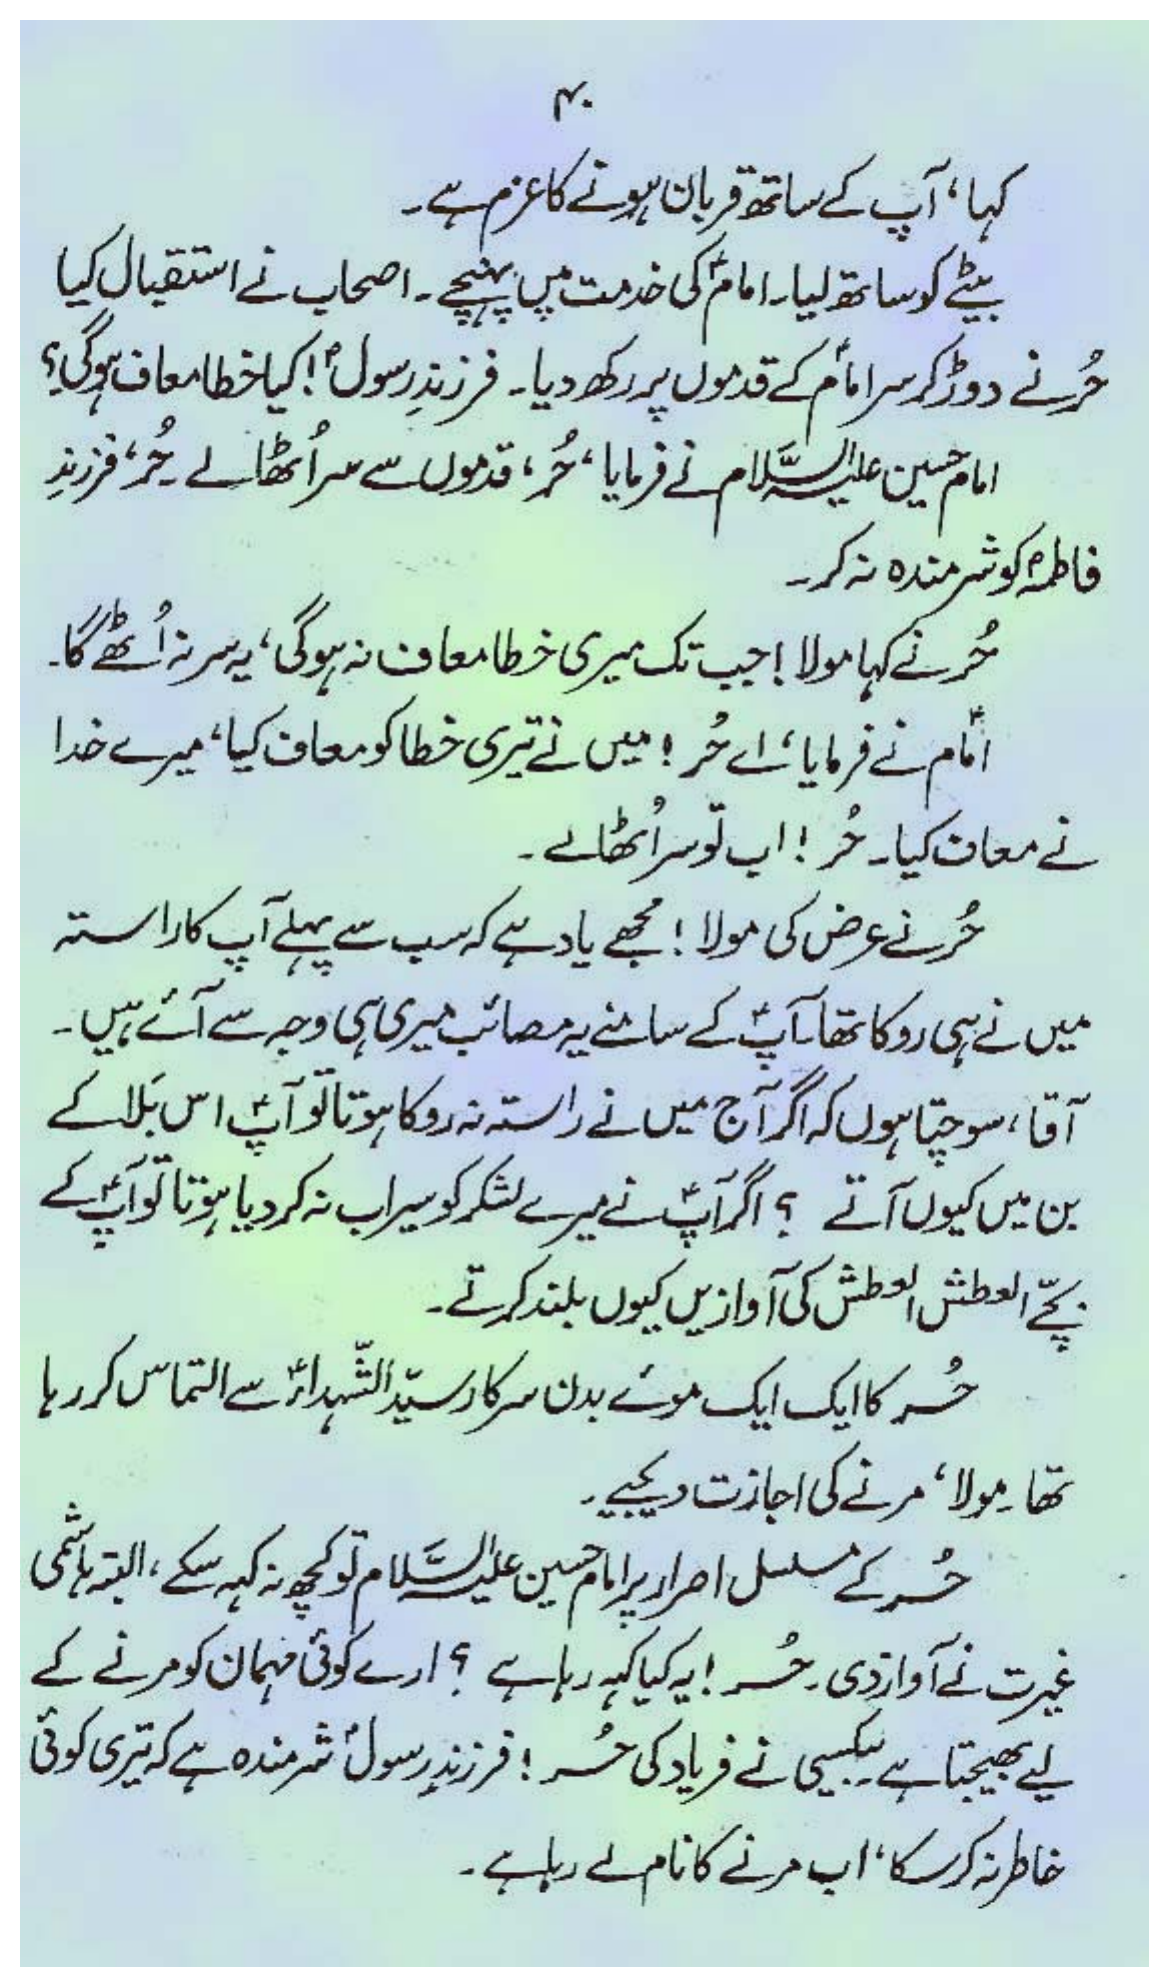 ۴۰
کہا، آپ کے ساتھ قربان ہونے کا عزم ہے۔
بیٹے کو ساتھ لیا۔ امامؑ کی خدمت میں پہنچے۔ اصحاب نے استقبال کیا
حُر نے دوڑ کر سر امامؑ کے قدموں پر رکھ دیا۔ فرزندِ رسولؐ! کیا خطا معاف ہوگی؟
امام حسین علیہ السَّلام نے فرمایا، حُر، قدموں سے سر اُٹھا لے۔ حُر، فرزندِ
فاطمہؑ کو شرمندہ نہ کر۔
حُر نے کہا مولا! جب تک میری خطا معاف نہ ہوگی، یہ سر نہ اُٹھے گا۔
امامؑ نے فرمایا، اے حُر! میں نے تیری خطا کو معاف کیا، میرے خدا
نے معاف کیا۔ حُر! اب تو سر اُٹھا لے۔
حُر نے عرض کی مولا! مُجھے یاد ہے کہ سب سے پہلے آپ کا راستہ
میں نے ہی روکا تھا۔ آپؑ کے سامنے یہ مصائب میری ہی وجہ سے آئے ہیں۔
آقا، سوچتا ہوں کہ اگر آج میں نے راستہ نہ روکا ہوتا تو آپؑ اس بَلا کے
بن میں کیوں آتے ؟ اگر آپؑ نے میرے لشکر کو سیراب نہ کر دیا ہوتا تو آپؑ کے
بچّے العطش العطش کی آوازیں کیوں بلند کرتے۔
حُر کا ایک ایک موئے بدن سرکار سیّد الشّہداءؑ سے التماس کر رہا
تھا۔ مولا، مرنے کی اجازت دیجیے۔
حُر کے مسلسل اصرار پر امام حسین علیہ السَّلام تو کچھ نہ کہہ سکے، البتہ ہاشمی
غیرت نے آواز دی۔ حُر! یہ کیا کہہ رہا ہے ؟ ارے کوئی مہمان کو مرنے کے
لیے بھیجتا ہے۔ بیکسی نے فریاد کی حُر! فرزندِ رسولؐ شرمندہ ہے کہ تیری کوئی
خاطر نہ کر سکا، اب مرنے کا نام لے رہا ہے۔